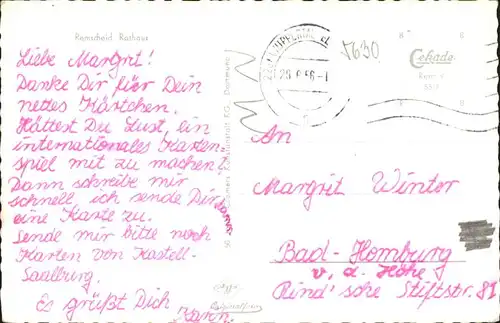 Remscheid Rathaus
Liebe Margrit!
Danke Dir für Dein
nettes Kärtchen.
Hättest Du Lust, ein
internationales Karten-
spiel mit zu machen?
Dann schreibe mir
schnell, ich sende Dir
eine Karte zu.
Sende mir bitte noch
Karten von Kastell-
Saalburg.
Es grüßt Dich
5630
Cekade
An
Margrit Winter
Bad-Homburg
v. d. Höhe
Rind'sche Stiftstr. 81